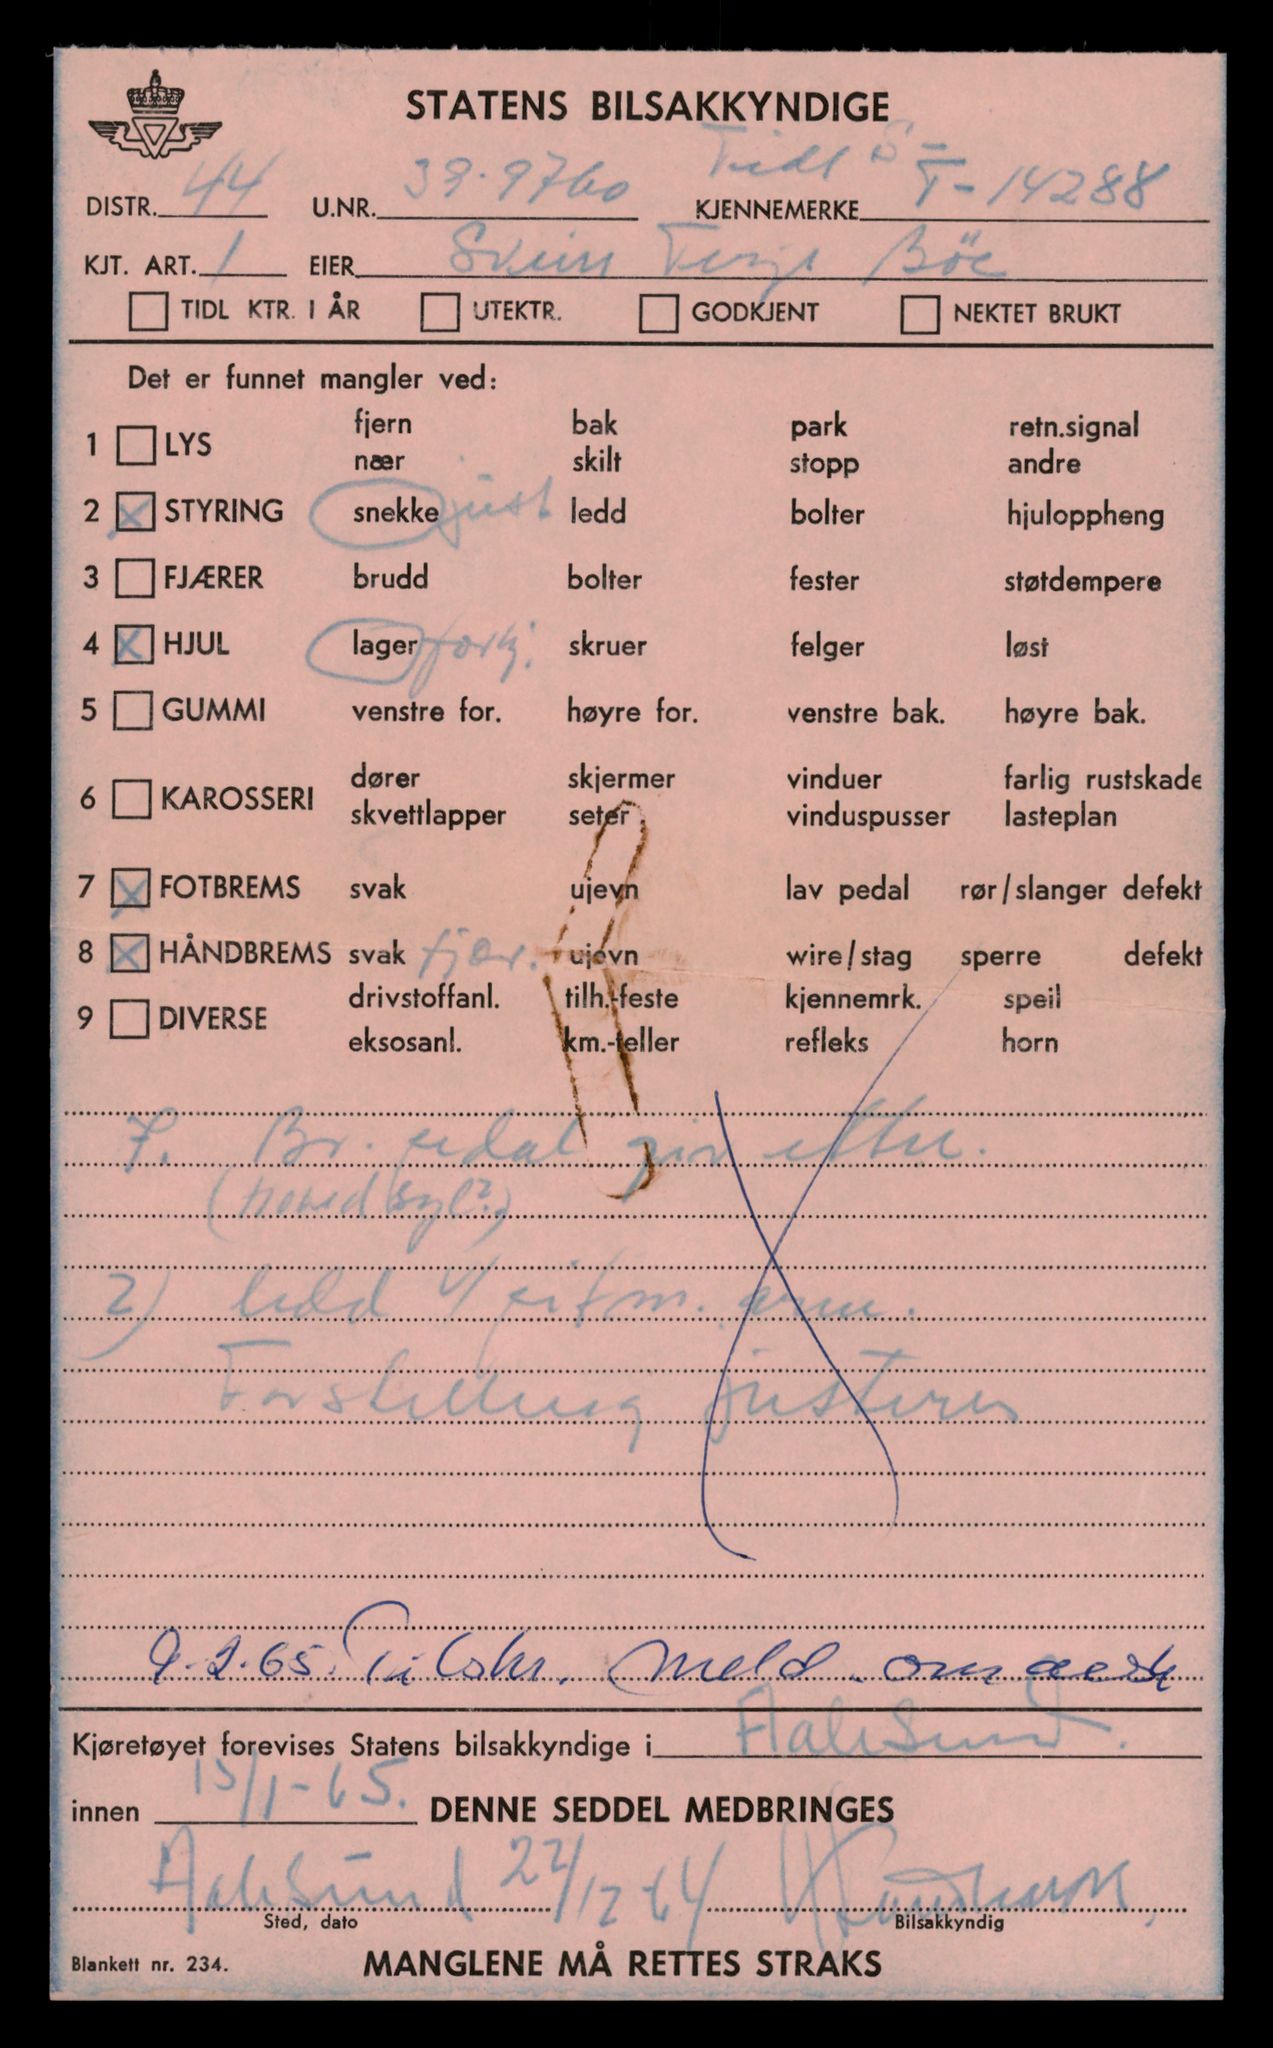 STATENS BILSAKKYNDIGE
Tidl
DISTR. 44 U.NR. 39-9760 KJENNEMERKE T-14288
KJT. ART. 1 EIER Svein Terje Böe
TIDL KTR. I ÅR UTEKTR. GODKJENT NEKTET BRUKT
Det er funnet mangler ved:
fjern bak park retn.signal
1 LYS
nær skilt stopp andre
2 X STYRING snekke just ledd bolter hjuloppheng
3 FJÆRER brudd bolter fester støtdempere
4 X HJUL lager forhj. skruer felger løst
5 GUMMI venstre for. høyre for. venstre bak. høyre bak.
dører skjermer vinduer farlig rustskade
6 KAROSSERI
skvettlapper seter vinduspusser lasteplan
7 X FOTBREMS svak ujevn lav pedal rør/slanger defekt
8 X HÅNDBREMS svak fjær. ujevn wire/stag sperre defekt
drivstoffanl. tilh.-feste kjennemrk. speil
9 DIVERSE
eksosanl. km.-teller refleks horn
7. Br. pedal gir etter.
(hovedsyl?)
2) ledd v/ pitm. arm.
Forstilling justeres
9.2.65. meld. om
Kjøretøyet forevises Statens bilsakkyndige i Aalesund.
innen 15/1-65. DENNE SEDDEL MEDBRINGES
Aalesund 22/12-64
Sted, dato Bilsakkyndig
Blankett nr. 234. MANGLENE MÅ RETTES STRAKS